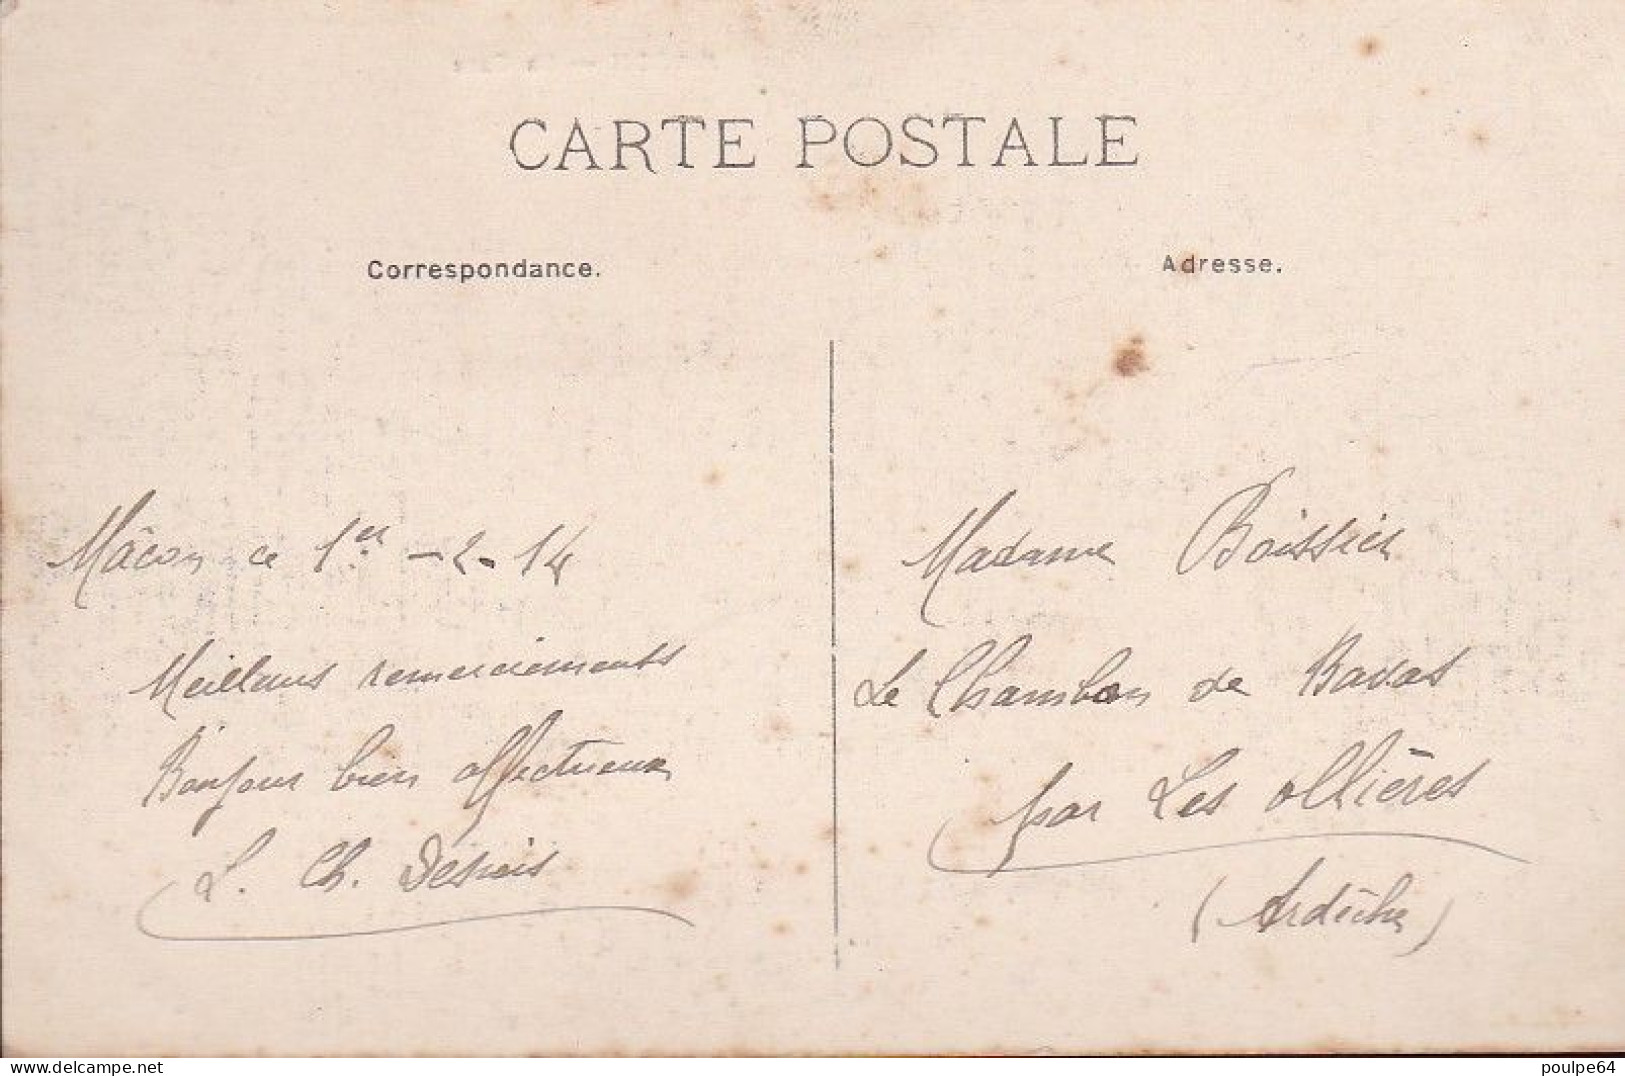 CARTE POSTALE
Correspondance.
Adresse.
Mâcon ce 1er -2-14
Meilleurs remerciements
Bonjour bien affectueux
L. Ch.
Madame Boissier
Le Chambon de Bavas
par Les ollières
(Ardèche)
delcampe.net
poulpe64